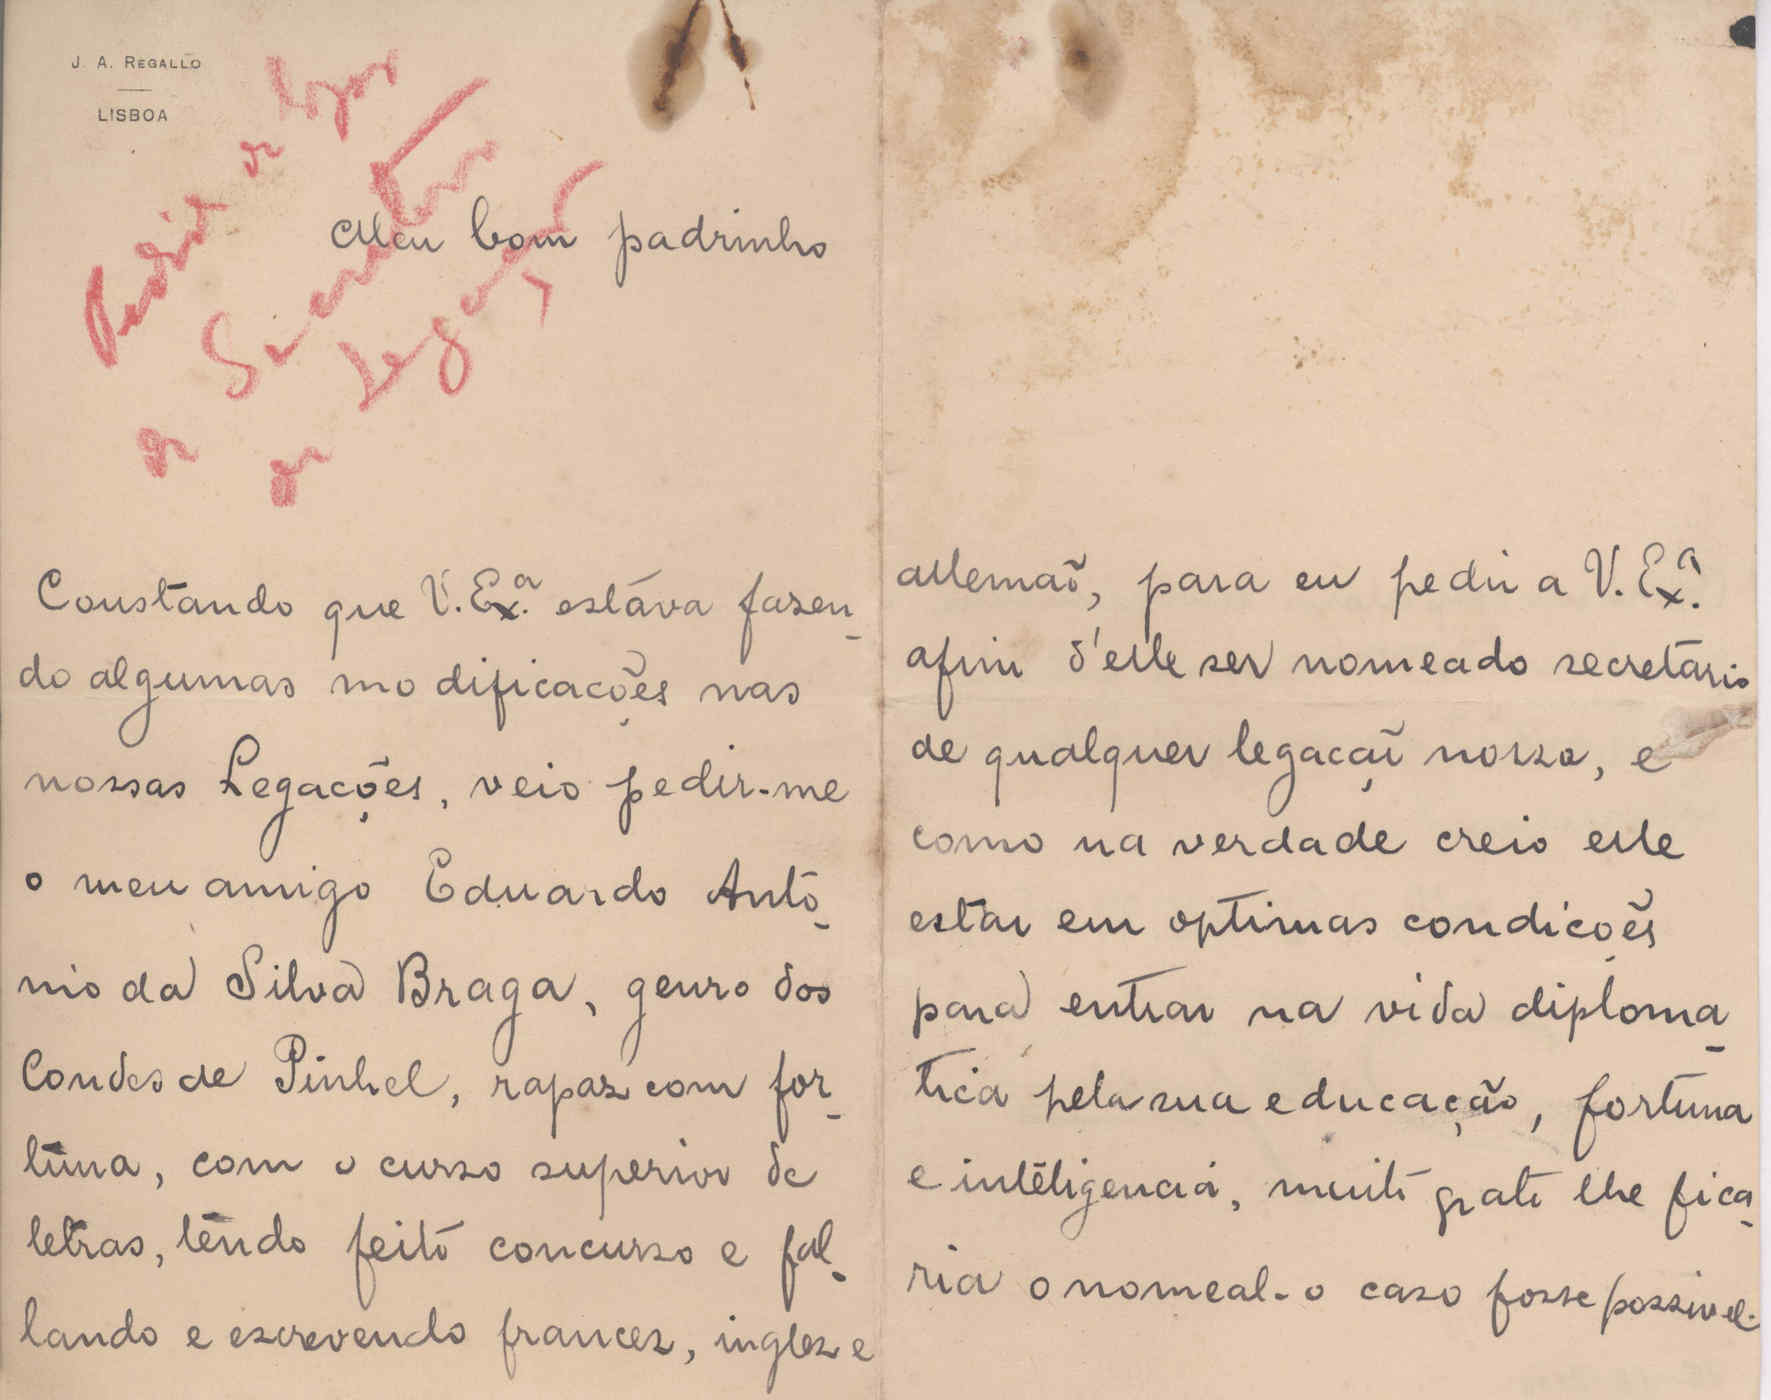 J. A. REGALLO
LISBOA
Pedido de lugar
de Secretario
de Legação
Meu bom padrinho
Constando que V. Ex.ª estáva fazen-
do algumas modificações nas
nossas Legações, veio pedir-me
o meu amigo Eduardo Antó-
nio da Silva Braga, genro dos
Condes de Pinhel, rapaz com for-
tuna, com o curso superior de
letras, tendo feito concurso e fal-
lando e escrevendo francez, inglez e
allemaõ, para eu pedir a V. Ex.ª
afim d'elle ser nomeado secretario
de qualquer legaçaõ nossa, e
como na verdade creio elle
estar em optimas condições
para entrar na vida diploma-
tica pela sua educação, fortuna
e inteligencia, muito grato lhe fica-
ria o nomeal-o caso fosse possivel.